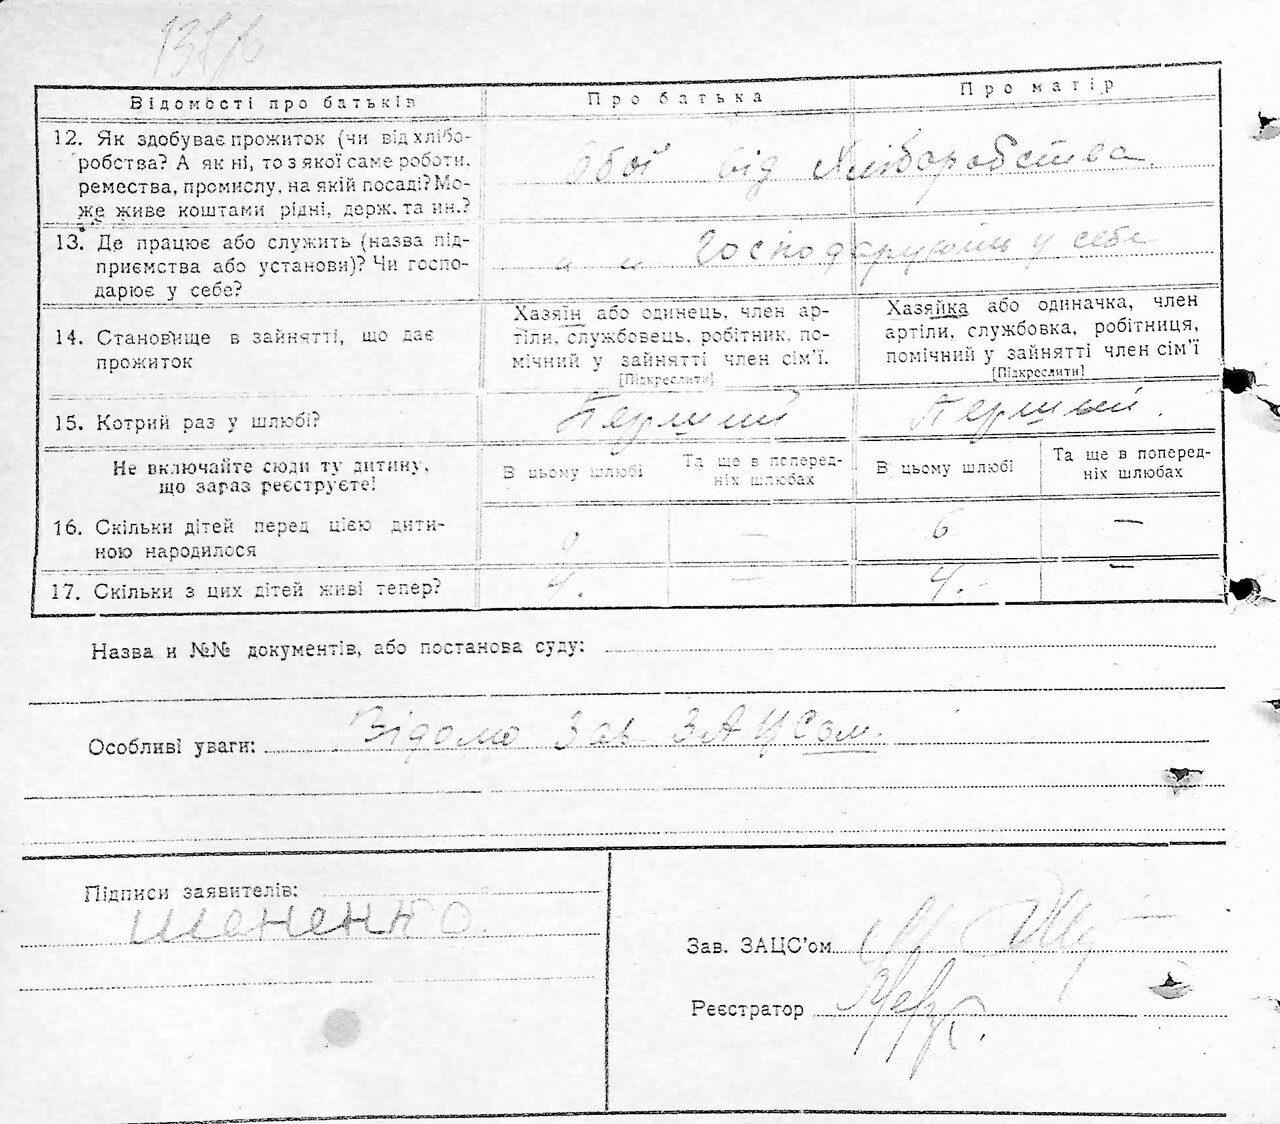 Відомості про батьків
Про батька
Про матір
12. Як здобуває прожиток (чи від хлібо-
робства? А як ні, то з якої саме роботи,
ремества, промислу, на якій посаді? Мо-
же живе коштами рідні, держ. та ин.?
Обої від Хліборобства.
13. Де працює або служить (назва під-
приємства або установи)? Чи госпо-
дарює у себе?
" " Господарують у себе
14. Становище в зайнятті, що дає
прожиток
Хазяїн або одинець, член ар-
тіли, службовець, робітник, по-
мічний у зайнятті член сім'ї.
[Підкреслити]
Хазяйка або одиначка, член
артіли, службовка, робітниця,
помічний у зайнятті член сім'ї
[Підкреслити]
15. Котрий раз у шлюбі?
Перший
Перший.
Не включайте сюди ту дитину,
що зараз реєструєте!
В цьому шлюбі
Та ще в поперед-
ніх шлюбах
В цьому шлюбі
Та ще в поперед-
ніх шлюбах
16. Скільки дітей перед цією дити-
ною народилося
—
6
—
17. Скільки з цих дітей живі тепер?
4.
—
4.-
—
Назва и №№ документів, або постанова суду:
Особливі уваги: Відомо Зав ЗАЦСом.
Підписи заявителів:
Шененко.
Зав. ЗАЦС'ом
Реєстратор